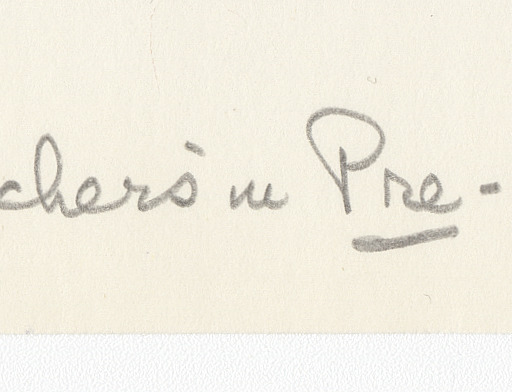 chers in Pre-